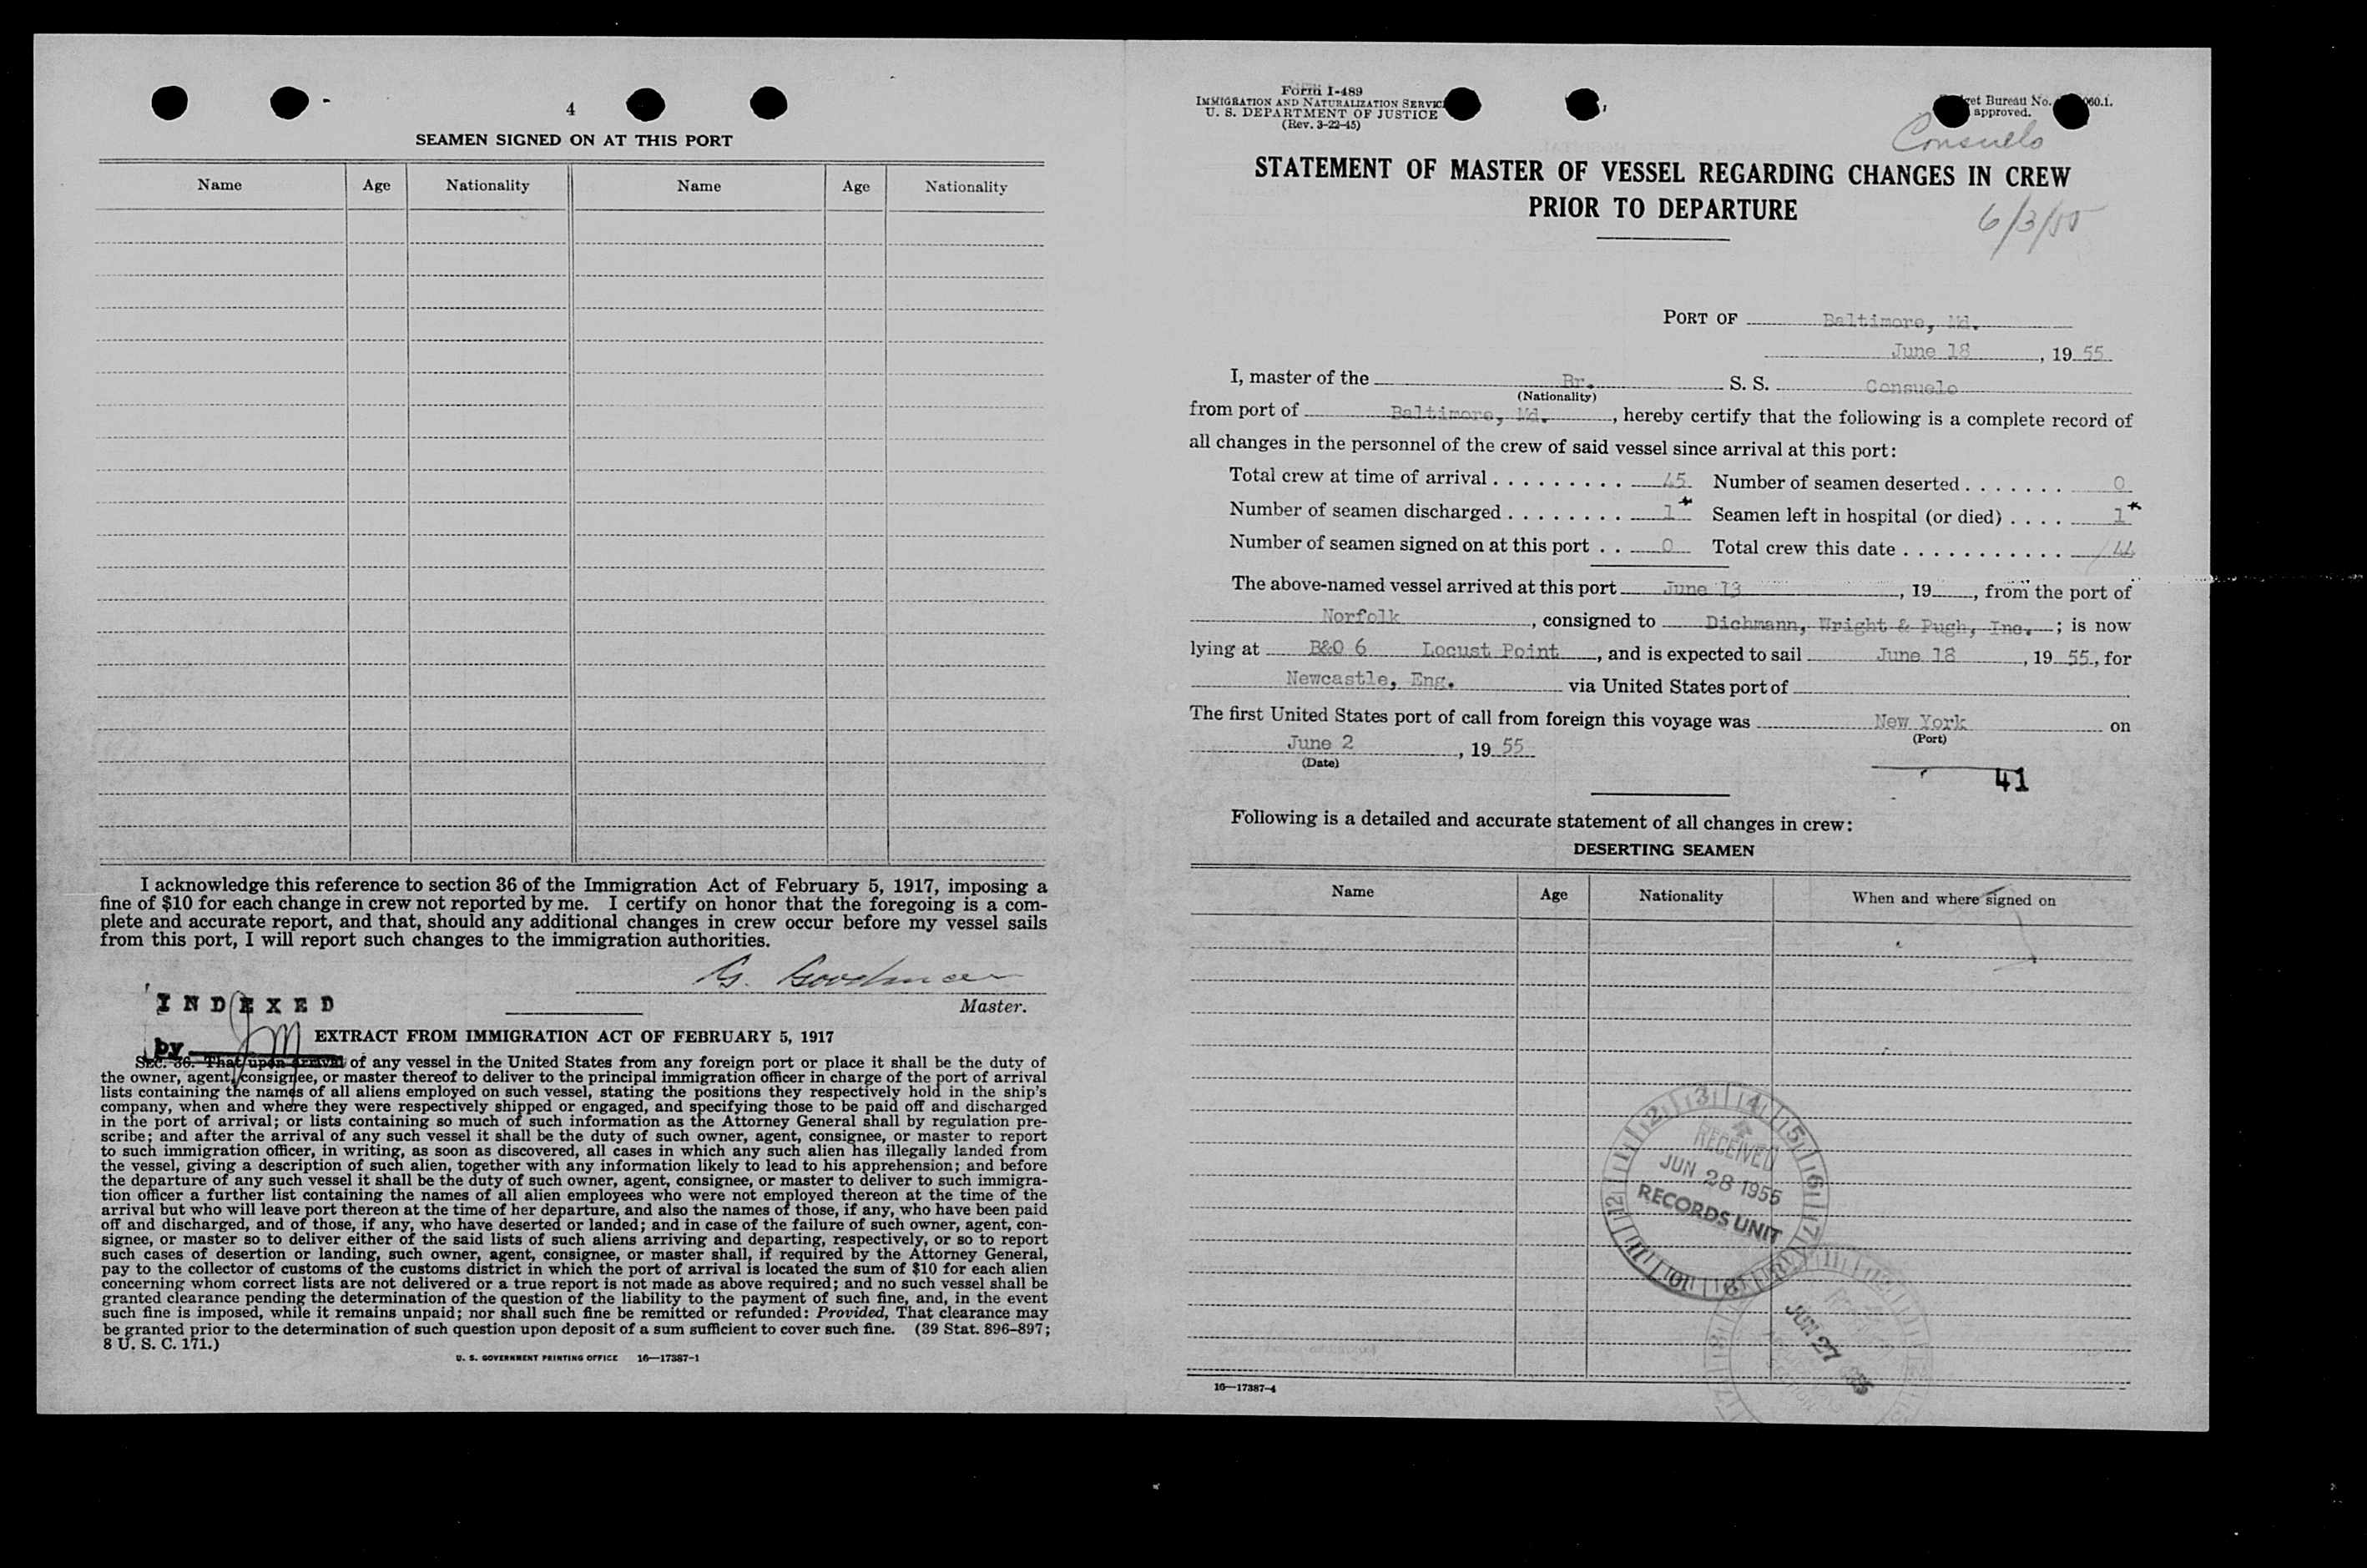 4
SEAMEN SIGNED ON AT THIS PORT
Name Age Nationality Name Age Nationality
I acknowledge this reference to section 36 of the Immigration Act of February 5, 1917, imposing a
fine of $10 for each change in crew not reported by me. I certify on honor that the foregoing is a com-
plete and accurate report, and that, should any additional changes in crew occur before my vessel sails
from this port, I will report such changes to the immigration authorities.
G.
Master.
INDEXED
by
EXTRACT FROM IMMIGRATION ACT OF FEBRUARY 5, 1917
SEC. 36. That upon arrival of any vessel in the United States from any foreign port or place it shall be the duty of
the owner, agent, consignee, or master thereof to deliver to the principal immigration officer in charge of the port of arrival
lists containing the names of all aliens employed on such vessel, stating the positions they respectively hold in the ship's
company, when and where they were respectively shipped or engaged, and specifying those to be paid off and discharged
in the port of arrival; or lists containing so much of such information as the Attorney General shall by regulation pre-
scribe; and after the arrival of any such vessel it shall be the duty of such owner, agent, consignee, or master to report
to such immigration officer, in writing, as soon as discovered, all cases in which any such alien has illegally landed from
the vessel, giving a description of such alien, together with any information likely to lead to his apprehension; and before
the departure of any such vessel it shall be the duty of such owner, agent, consignee, or master to deliver to such immigra-
tion officer a further list containing the names of all alien employees who were not employed thereon at the time of the
arrival but who will leave port thereon at the time of her departure, and also the names of those, if any, who have been paid
off and discharged, and of those, if any, who have deserted or landed; and in case of the failure of such owner, agent, con-
signee, or master so to deliver either of the said lists of such aliens arriving and departing, respectively, or so to report
such cases of desertion or landing, such owner, agent, consignee, or master shall, if required by the Attorney General,
pay to the collector of customs of the customs district in which the port of arrival is located the sum of $10 for each alien
concerning whom correct lists are not delivered or a true report is not made as above required; and no such vessel shall be
granted clearance pending the determination of the question of the liability to the payment of such fine, and, in the event
such fine is imposed, while it remains unpaid; nor shall such fine be remitted or refunded: Provided, That clearance may
be granted prior to the determination of such question upon deposit of a sum sufficient to cover such fine. (39 Stat. 896-897;
8 U. S. C. 171.)
U. S. GOVERNMENT PRINTING OFFICE 16—17387-1
Form I-489
IMMIGRATION AND NATURALIZATION SERVICE
U. S. DEPARTMENT OF JUSTICE
(Rev. 3-22-45)
Bureau No.
approved.
Consuelo
STATEMENT OF MASTER OF VESSEL REGARDING CHANGES IN CREW
PRIOR TO DEPARTURE
6/3/55
PORT OF Baltimore, Md.
June 18, 19 55
I, master of the Br. S. S. Consuelo
(Nationality)
from port of Baltimore, Md., hereby certify that the following is a complete record of
all changes in the personnel of the crew of said vessel since arrival at this port:
Total crew at time of arrival 45 Number of seamen deserted 0
Number of seamen discharged 1* Seamen left in hospital (or died) 1*
Number of seamen signed on at this port 0 Total crew this date 44
The above-named vessel arrived at this port June 13, 19, from the port of
Norfolk, consigned to Dichmann, Wright & Pugh, Inc.; is now
lying at B&O 6 Locust Point, and is expected to sail June 18, 19 55, for
Newcastle, Eng. via United States port of
The first United States port of call from foreign this voyage was New York on
(Port)
June 2, 19 55
(Date)
41
Following is a detailed and accurate statement of all changes in crew:
DESERTING SEAMEN
Name Age Nationality When and where signed on
RECEIVED
JUN 28 1955
RECORDS UNIT
JUN 27
16—17387-4